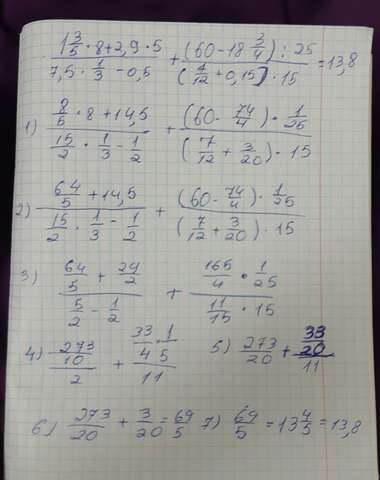 1 3/5 · 8 + 2,9 · 5 / 7,5 · 1/3 - 0,5 + (60 - 18 3/4) : 25 / (7/12 + 0,15) · 15 = 13,8
1) 8/5 · 8 + 14,5 / 15/2 · 1/3 - 1/2 + (60 - 74/4) · 1/25 / (7/12 + 3/20) · 15
2) 64/5 + 14,5 / 15/2 · 1/3 - 1/2 + (60 - 74/4) · 1/25 / (7/12 + 3/20) · 15
3) 64/5 + 29/2 / 5/2 - 1/2 + 165/4 · 1/25 / 11/15 · 15
4) 273/10 / 2 + 33/4 · 1/5 / 11 5) 273/20 + 33/20 / 11
6) 273/20 + 3/20 = 69/5 7) 69/5 = 13 4/5 = 13,8